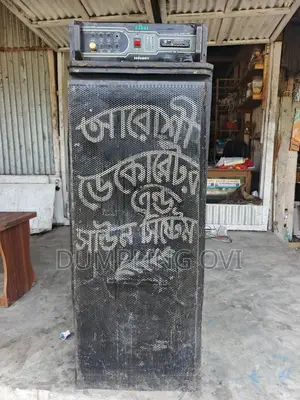 আরোহী
ডেকোরেটর
এন্ড
সাউন সিস্টেম
DUMPLING OVI